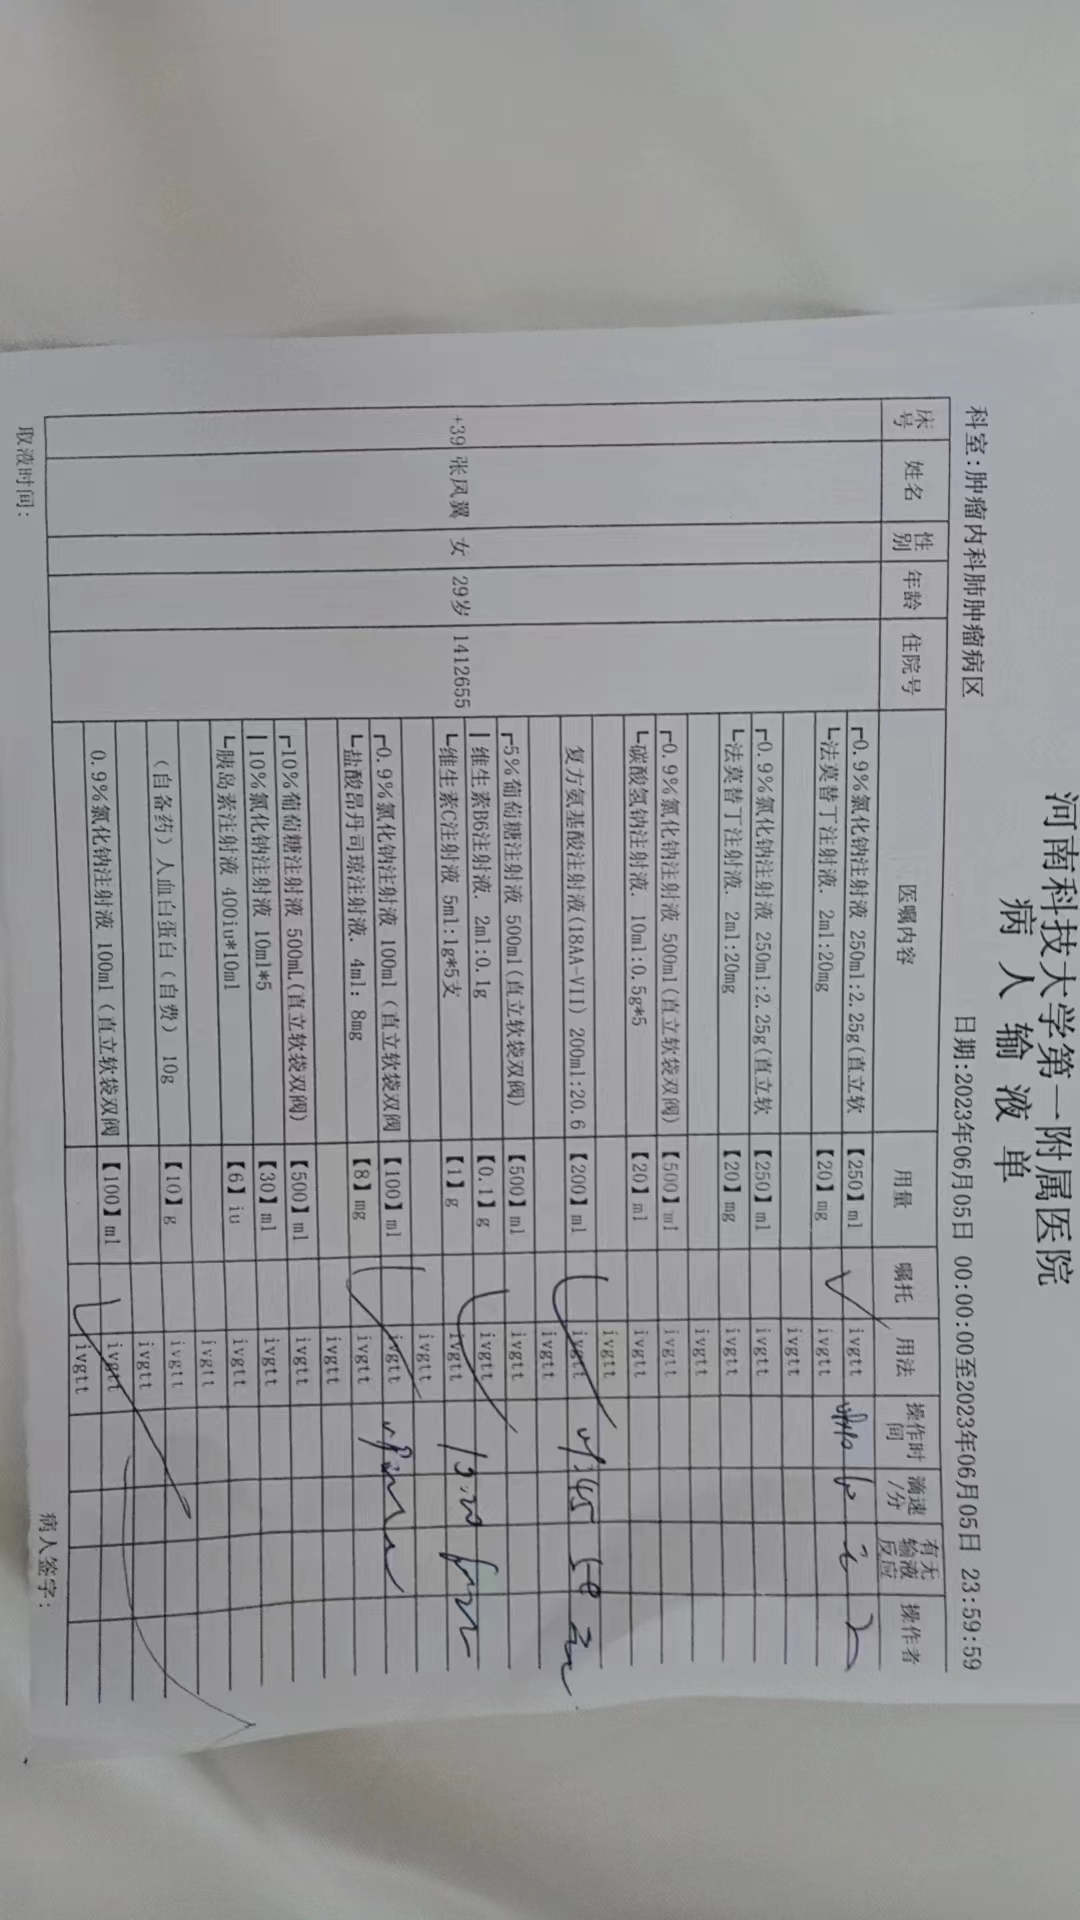 河南科技大学第一附属医院
病人输液单
科室:肿瘤内科肺肿瘤病区 日期:2023年06月05日 00:00:00至2023年06月05日 23:59:59
床号 姓名 性别 年龄 住院号 医嘱内容 用量 嘱托 用法 操作时间 滴速/分 有无输液反应 操作者
┌0.9%氯化钠注射液 250ml:2.25g(直立软 【250】ml ivgtt
└法莫替丁注射液. 2ml:20mg 【20】mg ivgtt
ivgtt
┌0.9%氯化钠注射液 250ml:2.25g(直立软 【250】ml ivgtt
└法莫替丁注射液. 2ml:20mg 【20】mg ivgtt
ivgtt
┌0.9%氯化钠注射液 500ml(直立软袋双阀) 【500】ml ivgtt
└碳酸氢钠注射液. 10ml:0.5g*5 【20】ml ivgtt
ivgtt
复方氨基酸注射液(18AA-VII) 200ml:20.6 【200】ml ivgtt
ivgtt
┌5%葡萄糖注射液 500ml(直立软袋双阀) 【500】ml ivgtt
│维生素B6注射液. 2ml:0.1g 【0.1】g ivgtt
+39 张凤翼 女 29岁 1412655 └维生素C注射液 5ml:1g*5支 【1】g ivgtt
ivgtt
┌0.9%氯化钠注射液 100ml (直立软袋双阀 【100】ml ivgtt
└盐酸昂丹司琼注射液. 4ml: 8mg 【8】mg ivgtt
ivgtt
┌10%葡萄糖注射液 500mL(直立软袋双阀) 【500】ml ivgtt
│10%氯化钠注射液 10ml*5 【30】ml ivgtt
└胰岛素注射液 400iu*10ml 【6】iu ivgtt
ivgtt
(自备药) 人血白蛋白 (自费) 10g 【10】g ivgtt
ivgtt
0.9%氯化钠注射液 100ml (直立软袋双阀 【100】ml ivgtt
ivgtt
取液时间: 病人签字: